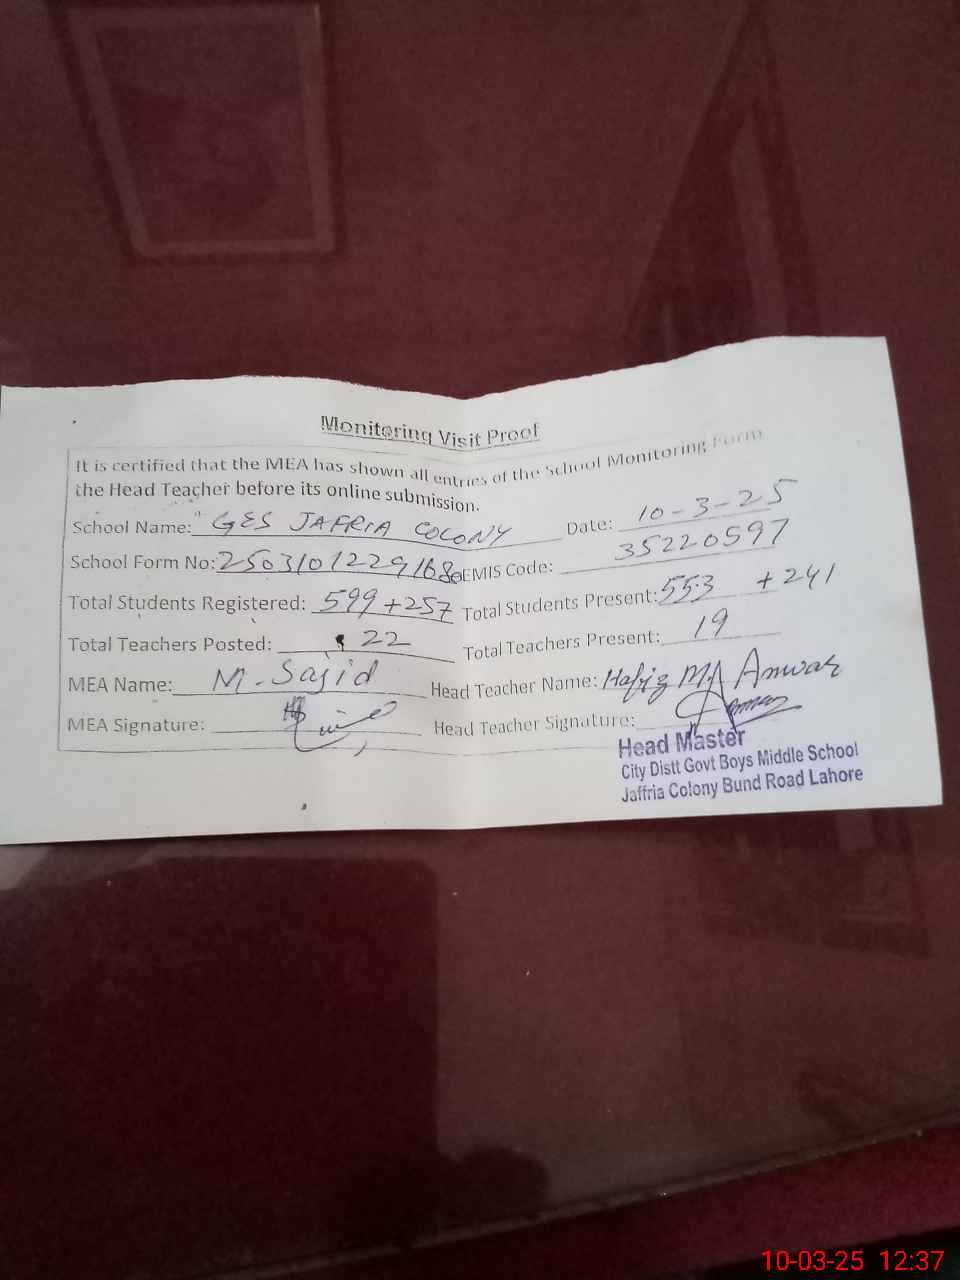 Monitoring Visit Proof
It is certified that the MEA has shown all entries of the School Monitoring Form
the Head Teacher before its online submission.
School Name: GES JAFRIA COLONY Date: 10-3-25
School Form No: 2503101229168 EMIS Code: 35220597
Total Students Registered: 599+257 Total Students Present: 553 +241
Total Teachers Posted: 22 Total Teachers Present: 19
MEA Name: M. Sajid Head Teacher Name: Hafiz M. Anwar
MEA Signature: Head Teacher Signature:
Head Master
City Distt Govt Boys Middle School
Jaffria Colony Bund Road Lahore
10-03-25 12:37